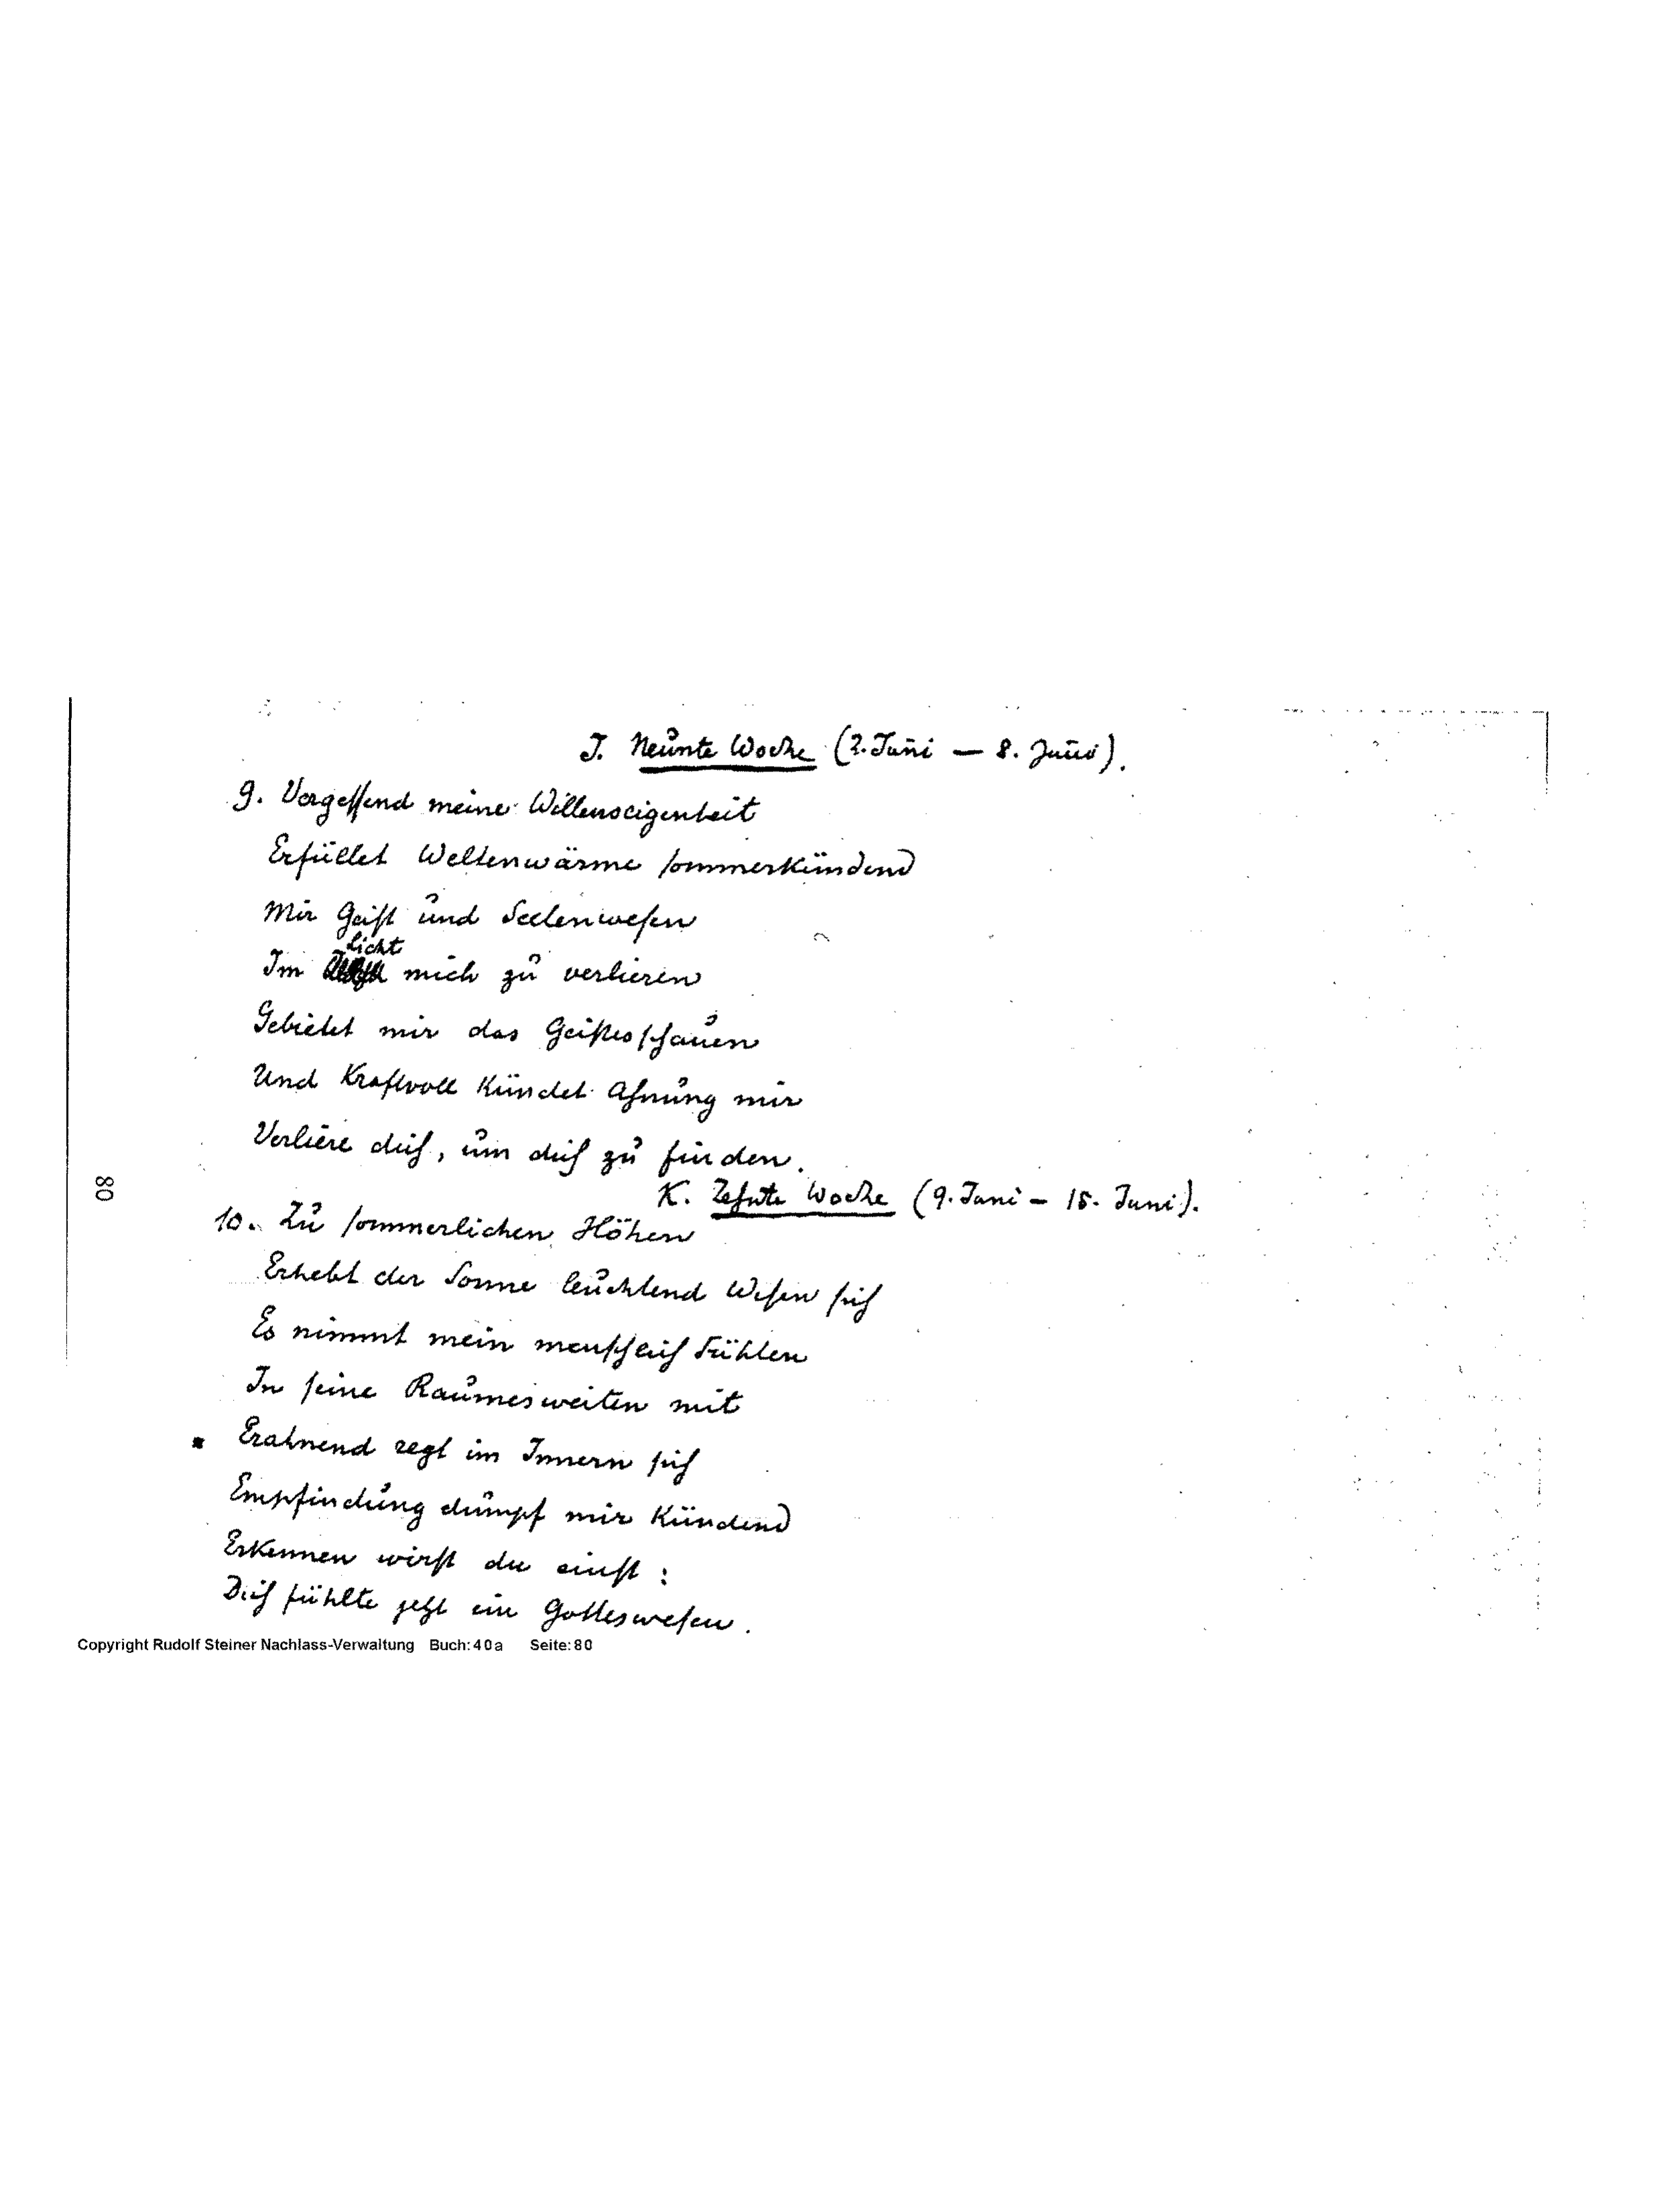 J. Neunte Woche (2. Juni — 8. Juni).
9. Vergessend meine Willenseigenheit
Erfüllet Weltenwärme sommerkündend
Mir Geist und Seelenwesen
Licht
Im mich zu verlieren
Gebietet mir das Geistesschauen
Und Kraftvoll Kündet Ahnung mir
Verliere dich, um dich zu finden.
K. Zehnte Woche (9. Juni – 15. Juni).
10. Zu sommerlichen Höhen
Erhebt der Sonne leuchtend Wesen sich
Es nimmt mein menschlich Fühlen
In seine Raumesweiten mit
Erahnend regt im Innern sich
Empfindung dumpf mir Kündend
Erkennen wirst du einst:
Dich fühlte jetzt ein Gotteswesen.
80
Copyright Rudolf Steiner Nachlass-Verwaltung Buch: 40a Seite: 80